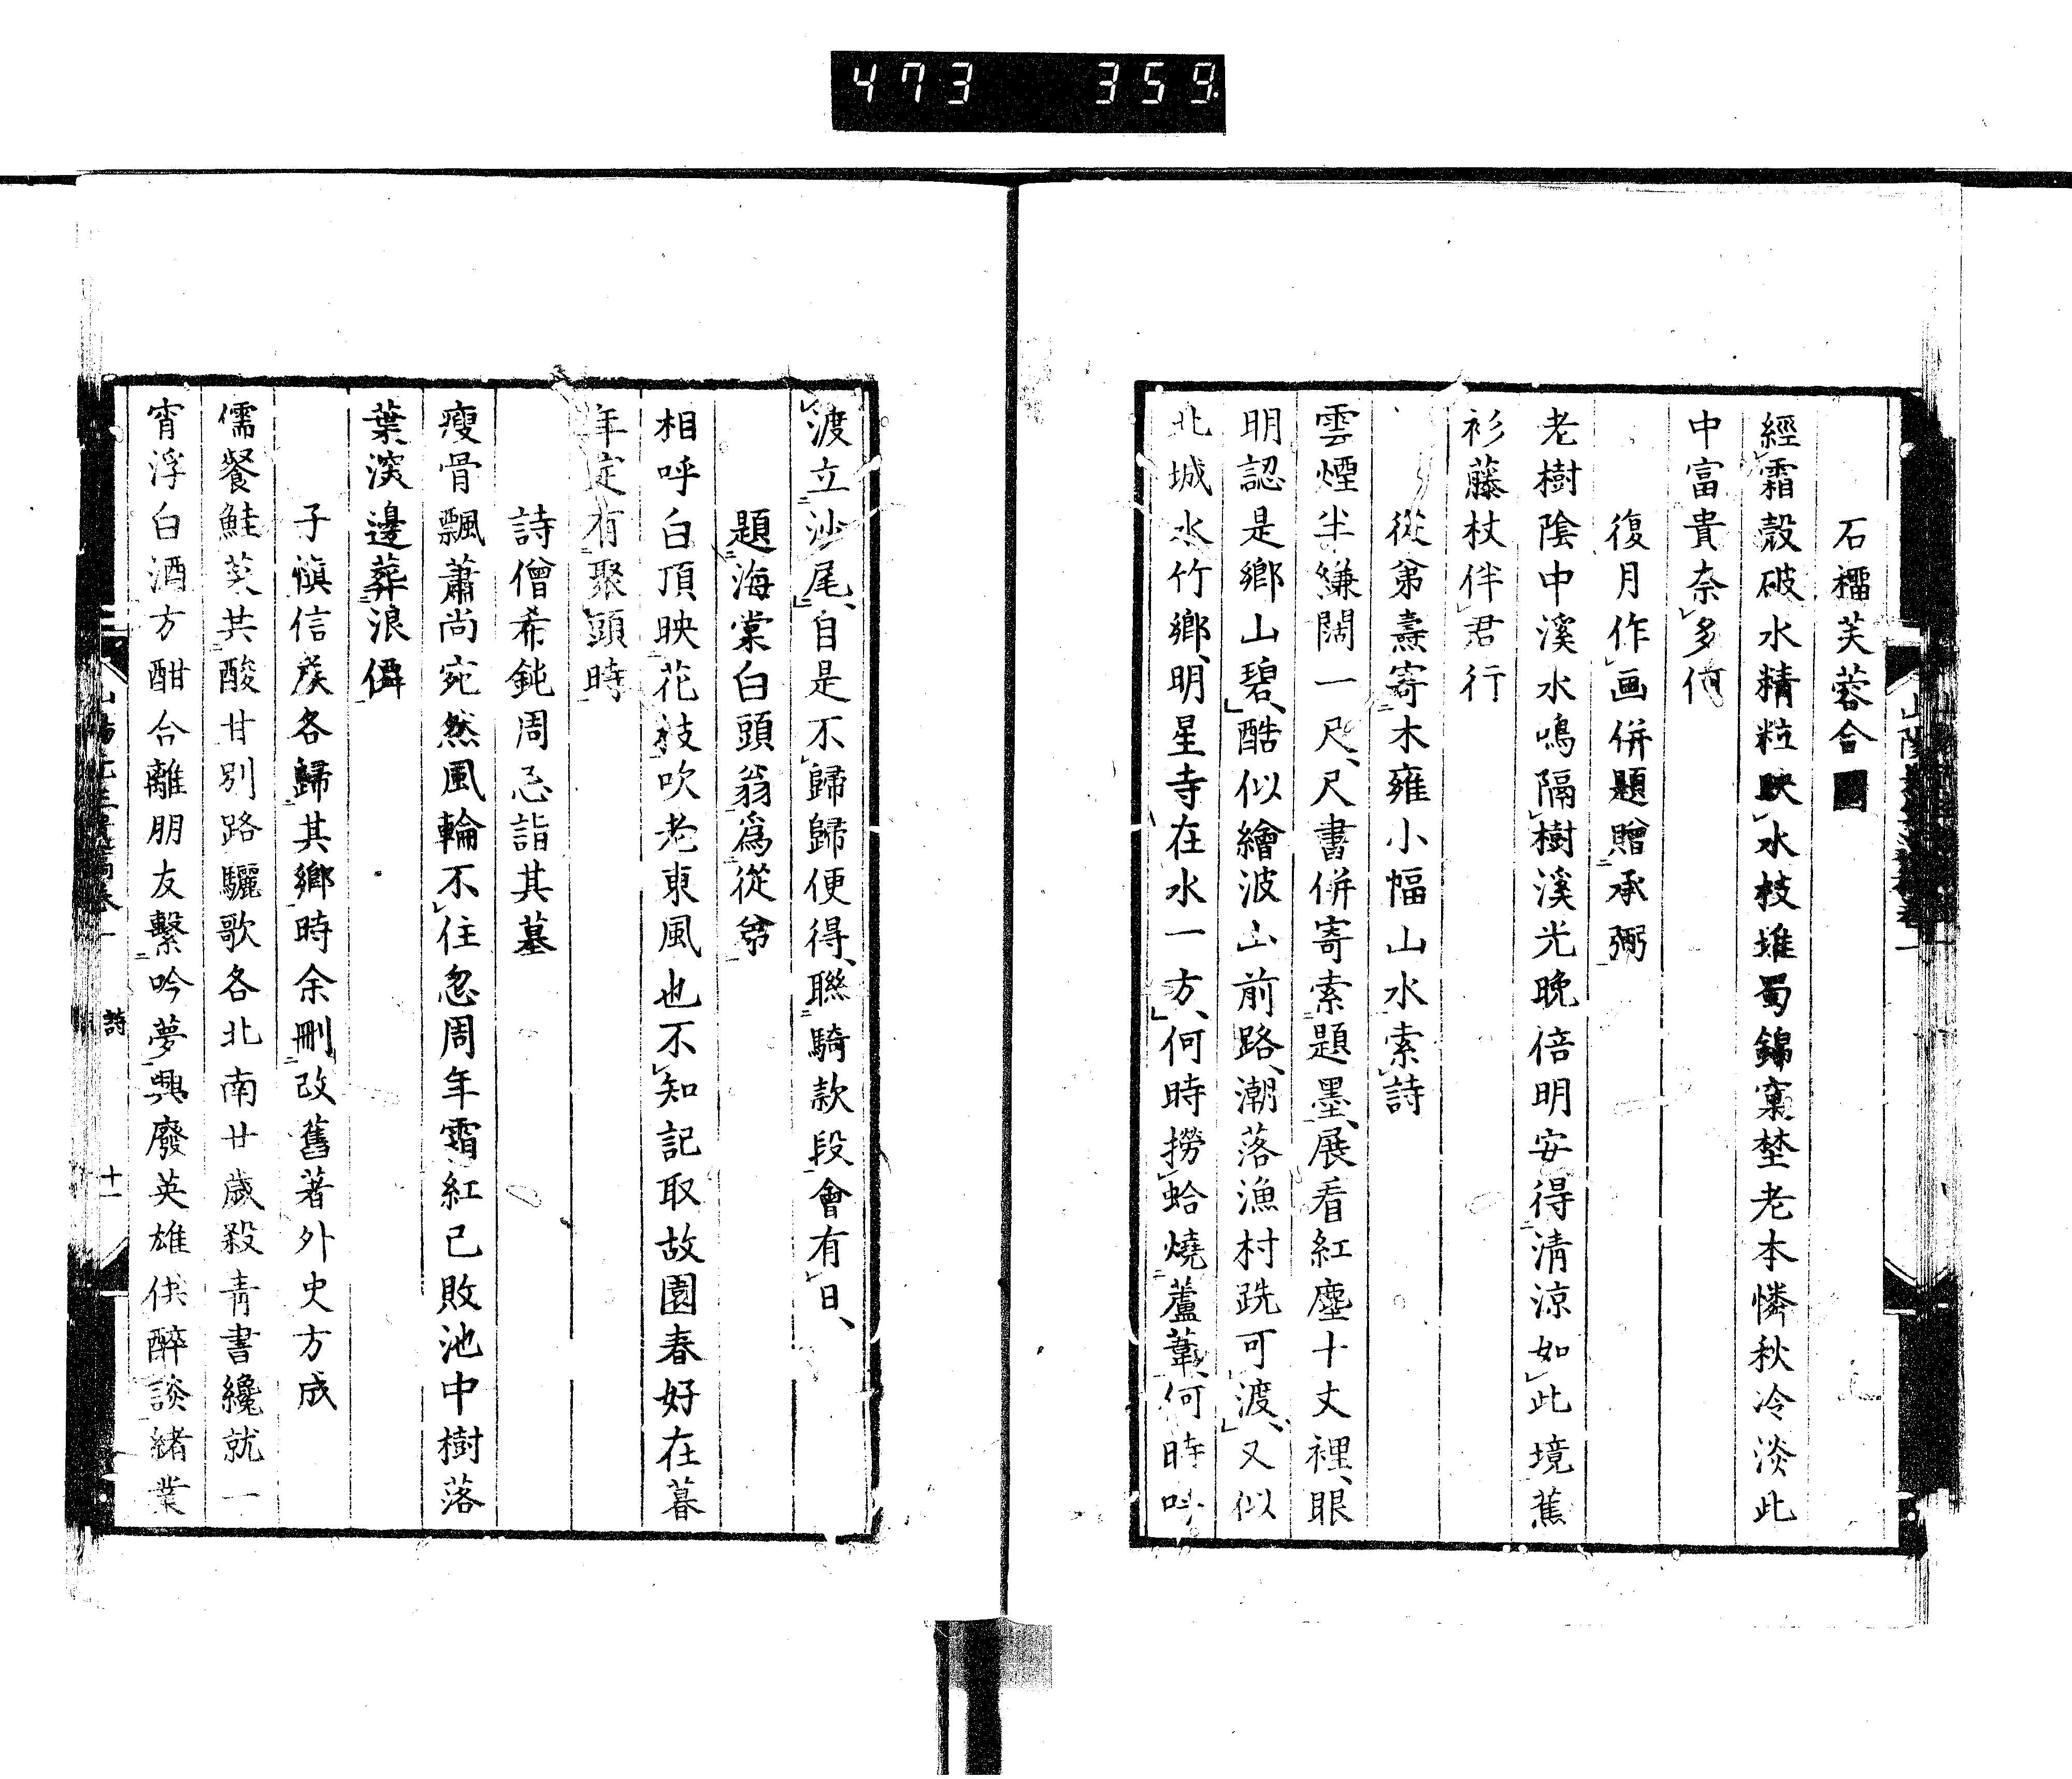 473 359
石橊芙蓉合圖
經霜殼破水精粒映水枝堆蜀錦窠埜老本憐秋冷淡此
中富貴奈多何
復月作画併題贈承弼
老樹陰中溪水鳴隔樹溪光晚倍明安得清涼如此境蕉
衫藤杖伴君行
從弟壽寄木雍小幅山水索詩
雲煙半縑闊一尺尺書併寄索題墨展看紅塵十丈裡眼
明認是鄉山碧酷似繪波山前路潮落漁村跣可渡又似
北城水竹鄉明星寺在水一方何時撈蛤燒蘆葦何時叫
渡立沙尾自是不歸歸便得聯騎款段會有日
題海棠白頭翁為從弟
相呼白頂映花枝吹老東風也不知記取故園春好在暮
年定有聚頭時
詩僧希鈍周忌詣其墓
瘦骨飄蕭尚宛然風輪不住忽周年霜紅已敗池中樹落
葉深邊葬浪僊
子愼信矦各歸其鄉時余刪改舊著外史方成
儒餐鮭菜共酸甘別路驪歌各北南廿歲殺青書纔就一
宵浮白酒方酣合離朋友繫吟夢興廢英雄供醉談緒業
詩
十一